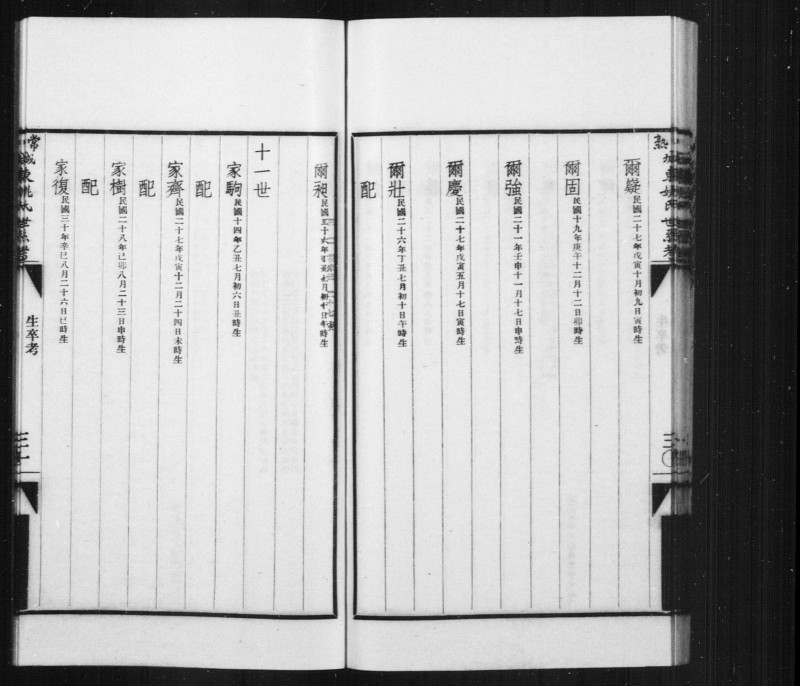 爾嶷民國二十七年戊寅十月初九日寅時生
爾固民國十九年庚午十二月十二日卯時生
爾強民國二十一年壬申十一月十七日申時生
爾慶民國二十七年戊寅五月十七日寅時生
爾壯民國二十六年丁丑七月初十日午時生
配
爾昶民國
十一世
家駒民國十四年乙丑七月初六日丑時生
配
家齊民國二十七年戊寅十二月二十四日未時生
配
家樹民國二十八年己卯八月二十三日申時生
配
家復民國三十年辛巳八月二十六日巳時生
生卒考